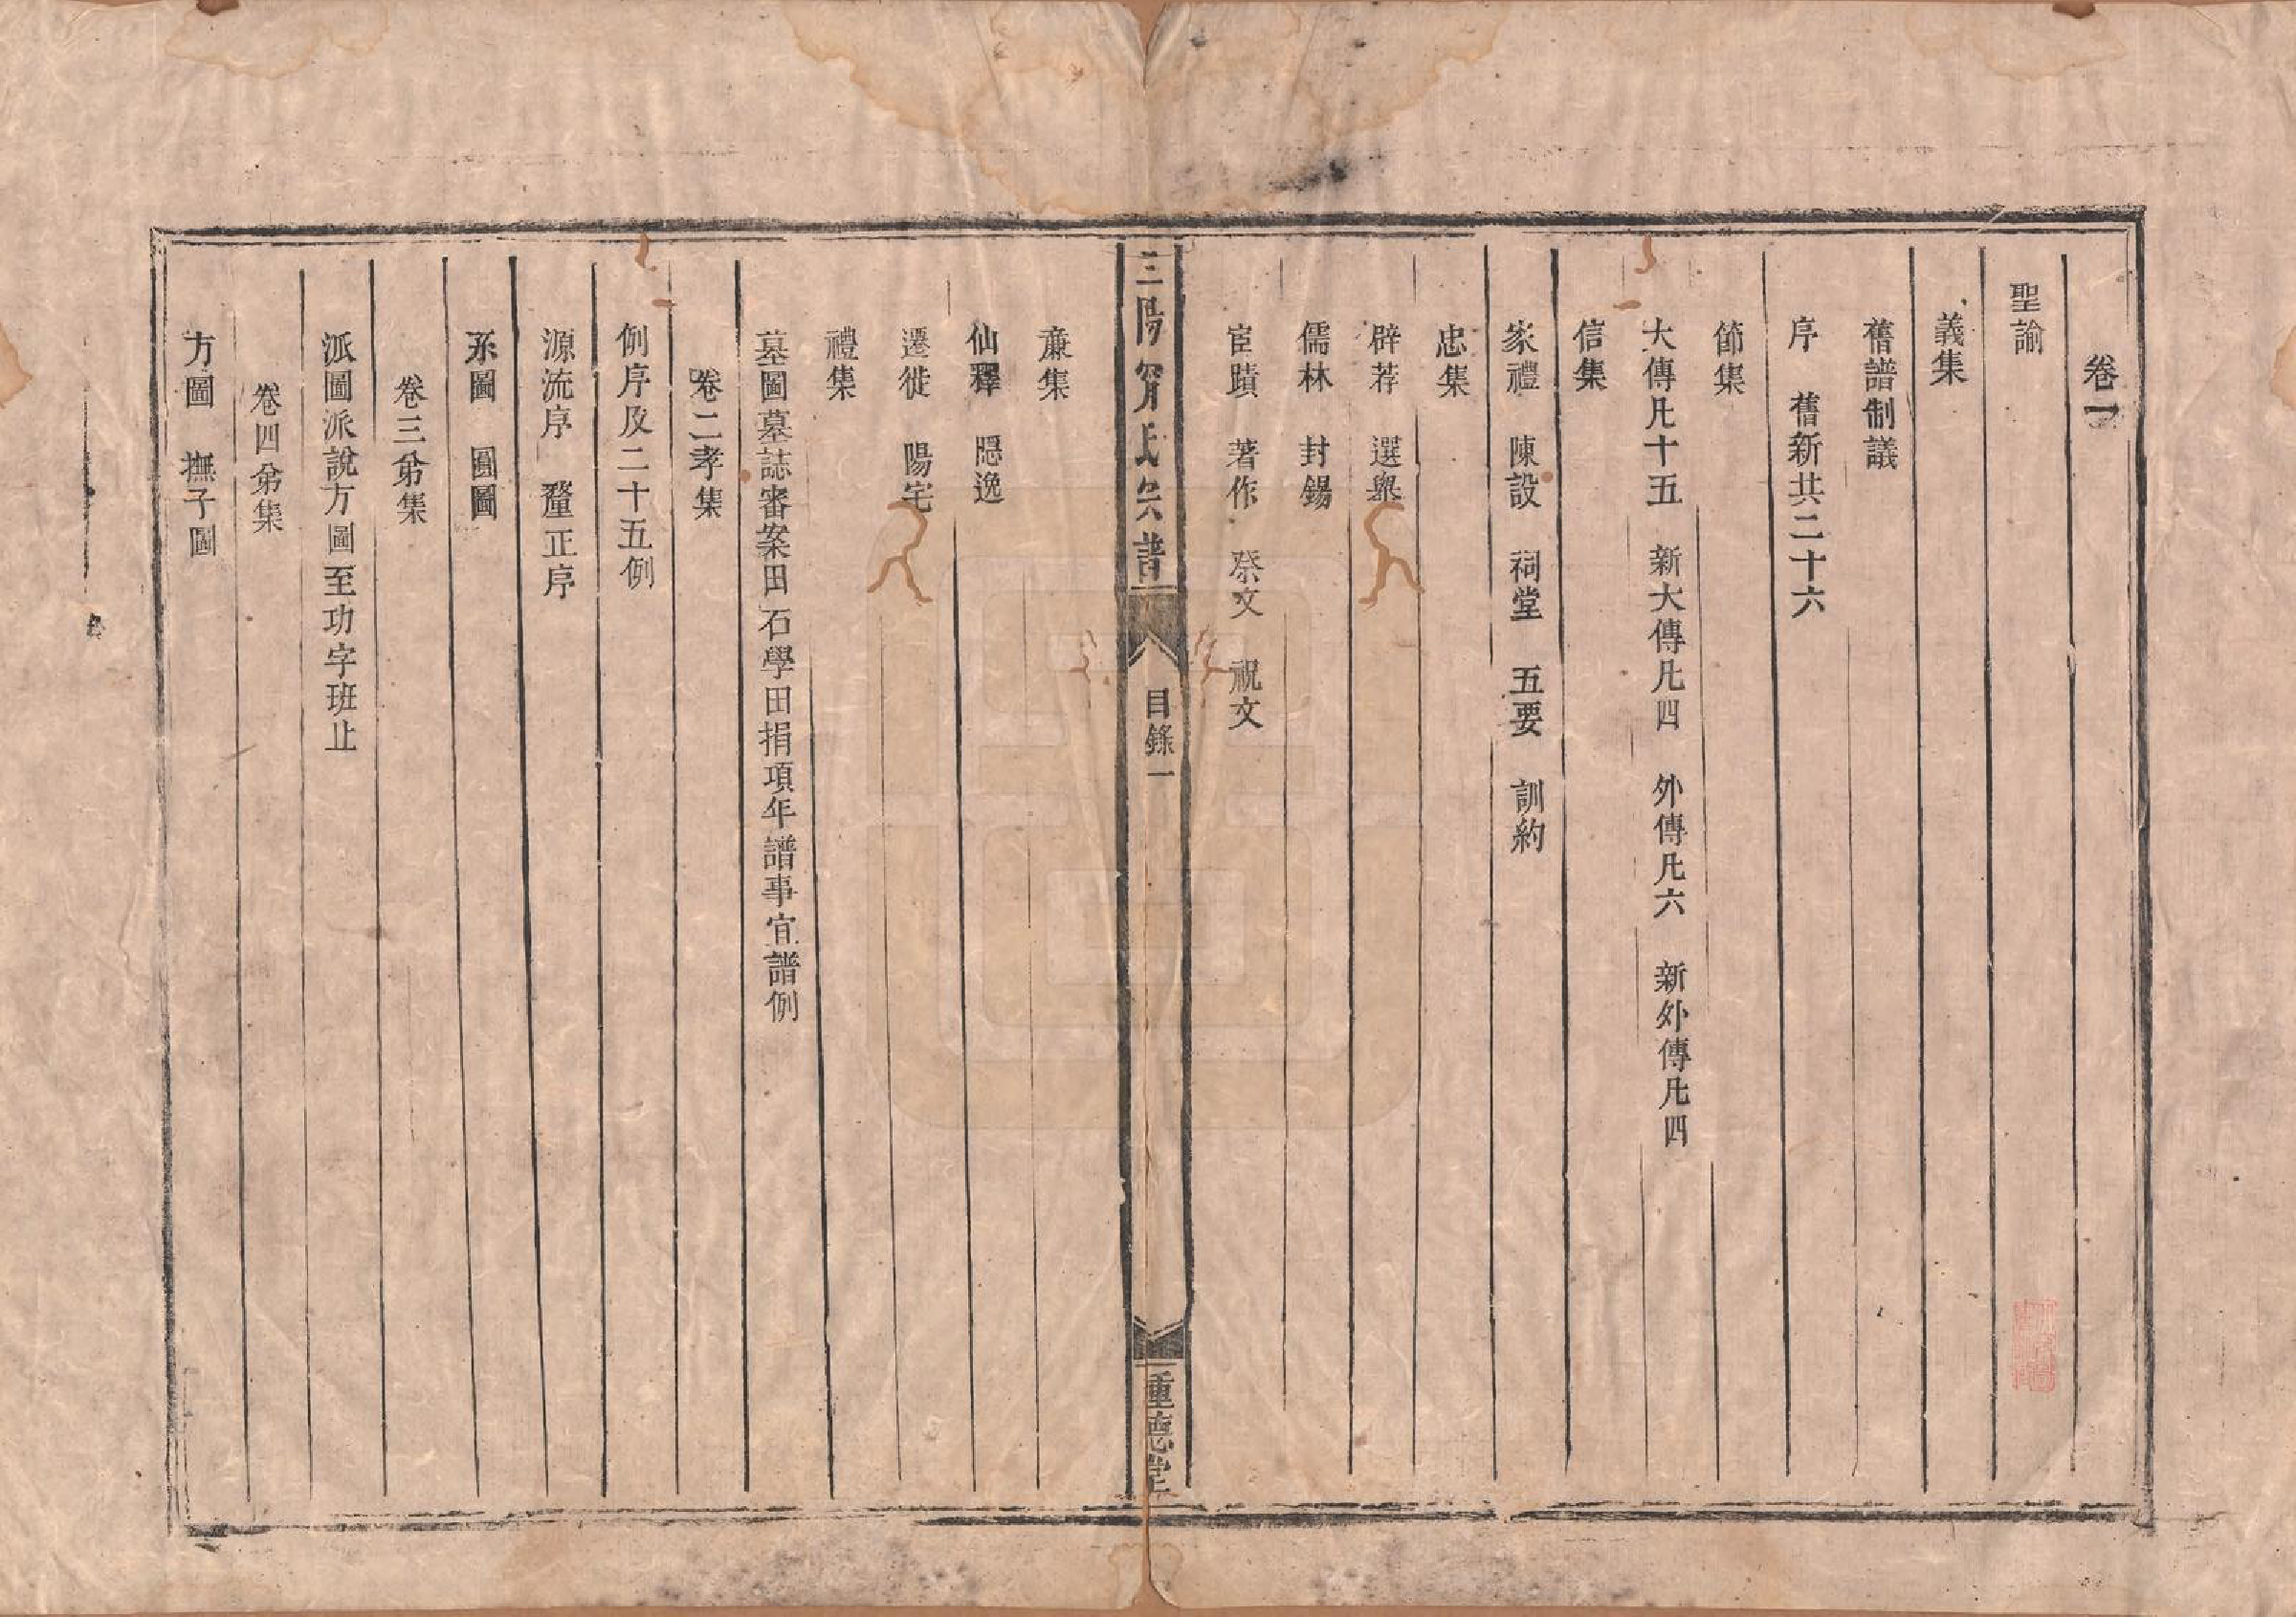 卷一
聖諭
義集
舊譜制議
序 舊新共二十六
節集
大傳凡十五 新大傳凡四 外傳凡六 新外傳凡四
信集
家禮 陳設 祠堂 五要 訓約
忠集
辟荐 選舉
儒林 封錫
宦蹟 著作 祭文 祝文
三陽甯氏宗譜
目錄一
重德堂
亷集
仙釋 隠逸
遷徙 陽宅
禮集
墓圖墓誌審案田石學田捐項年譜事宜譜例
卷二孝集
例序及二十五例
源流序 釐正序
系圖 圓圖
卷三弟集
派圖派說方圖至功字班止
卷四弟集
方圖 撫子圖